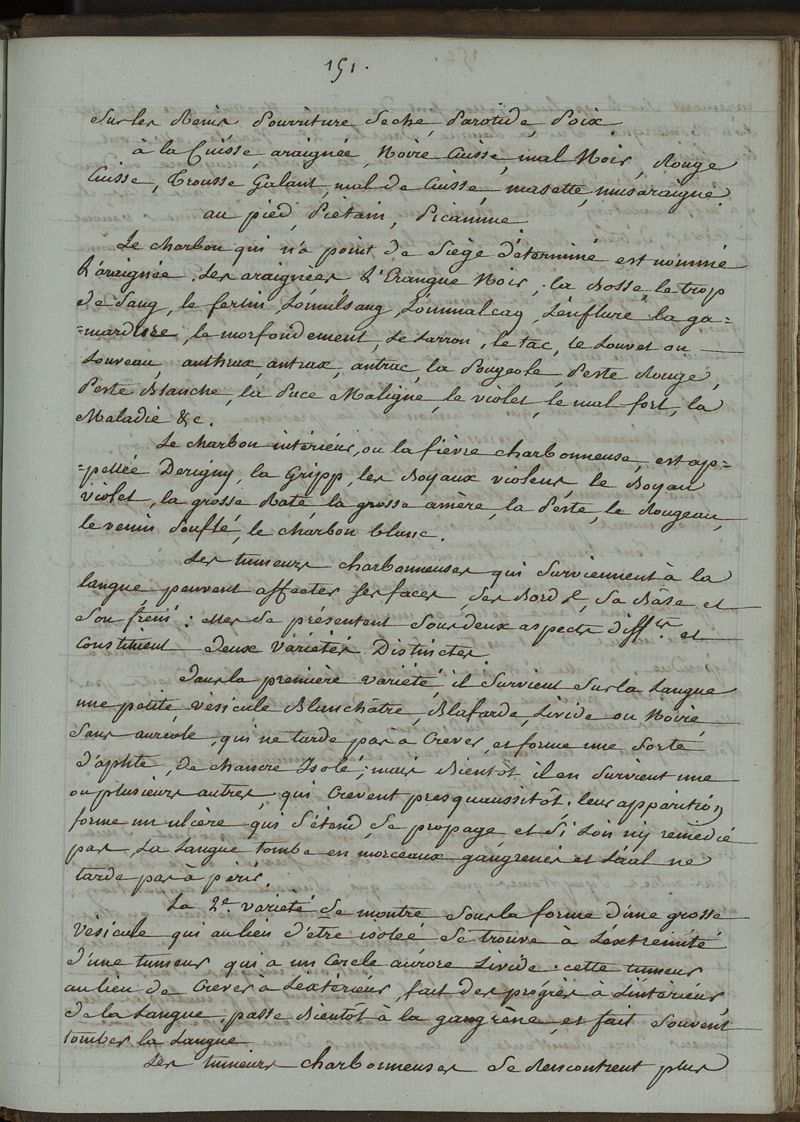 151.
Sur les Reins Pourriture Seche, Parotide, Poix.
à la Cuisse, araignée, Noire Cuisse, mal Noir, Rouge
Cuisse, Trousse Galant, mal de Cuisse, masette, musaraigne.
au pied, Piétain, Picamme.
Le charbon qui n'a point de Siège déterminé est nommé
L'araignée, les araignées L'Erangue Noir, la Bosse, le trop
de Sang, le fertin, Lómulsang, Lómmalcag, L'enflure la ga=
=mardure, le morfondement, le Larron, le tac, le Louvet ou
Louveau, anthrax, antrax, antrac, la Pougeole, Peste Rouge,
Peste Blanche, la Puce Maligne, le violet, le mal fort, la
Maladie &c.
Le charbon intérieur, ou la fièvre charbonneuse, est ap=
=pellée Derigny, la Gripp, les Boyaux violens, le Boyau
violet, la grosse Rate, la grosse amère, la Peste, le Rougeau,
le venin Soufflé, le charbon blanc.
Les tumeurs charbonneuses qui Surviennent à la
langue, peuvent affecter ses faces, ses Bords, Sa Bâse et
Son frein : elles Se présentent Sous deux aspects diff.ts et
constituent deux variétés Distinctes
Dans la première variété, il Survient Sur la Langue
une petite vésicule Blanchâtre, Blafarde, Livide ou Noire
Sans auréole, qui ne tarde pas à Crever, et forme une Sorte
d'aphte, de chancre Isolé; mais Bientôt il en Survient une
ou plusieurs autres, qui Crevent presqu'aussitôt. leur apparition
forme un ulcère qui S'étend, Se propage et Si Loin n'y remédie
pas, La Langue tombe en morceaux gangrenés et L'aal ne
tarde pas à périr.
La 2e variété Se montre Sous la forme d'une grosse
vésicule qui au lieu d'être isolée Se trouve à L'extremité
d'une tumeur qui a un Cercle aurore Livide. cette tumeur
au lieu de Crever à L'extérieur, fait des progrès à L'interieur
de la Langue, passe Bientôt à la gangrène, et fait Souvent
tomber la Langue
Les tumeurs charbonneuses Se Rencontrent plus